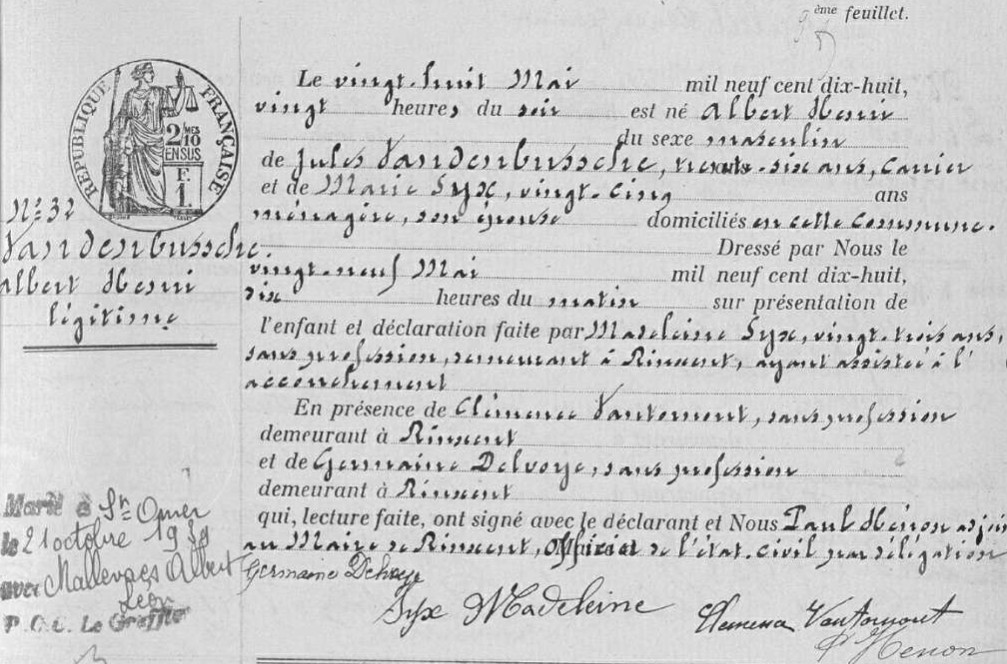 5 ème feuillet.
RÉPUBLIQUE FRANÇAISE
2/10 MES
EN SUS
F.
1.
Nº 32
Vandenbussche.
Albert Henri
légitime
Le vingt-huit Mai mil neuf cent dix-huit,
vingt heures du soir est né Albert Henri
du sexe masculin
de Jules Vandenbussche, trente-six ans, carrier
et de Marie Syx, vingt-cinq ans
ménagère, son épouse domiciliés en cette commune.
Dressé par Nous le
vingt-neuf Mai mil neuf cent dix-huit,
dix heures du matin sur présentation de
l'enfant et déclaration faite par Madeleine Syx, vingt-trois ans,
sans profession, demeurant à Rinxent, ayant assistée à l'
accouchement
En présence de Clémence Vantornout, sans profession
demeurant à Rinxent
et de Germaine Delvoye, sans profession
demeurant à Rinxent
qui, lecture faite, ont signé avec le déclarant et Nous Paul Hénon adjoint
au Maire de Rinxent, Officier de l'état-civil par délégation
Germaine Delvoye
Syx Madeleine
Clemence Vantornout
P. Henon
Marié à St Omer
le 21 octobre 19
avec Albert
Léon
P.C.C. Le Greffier